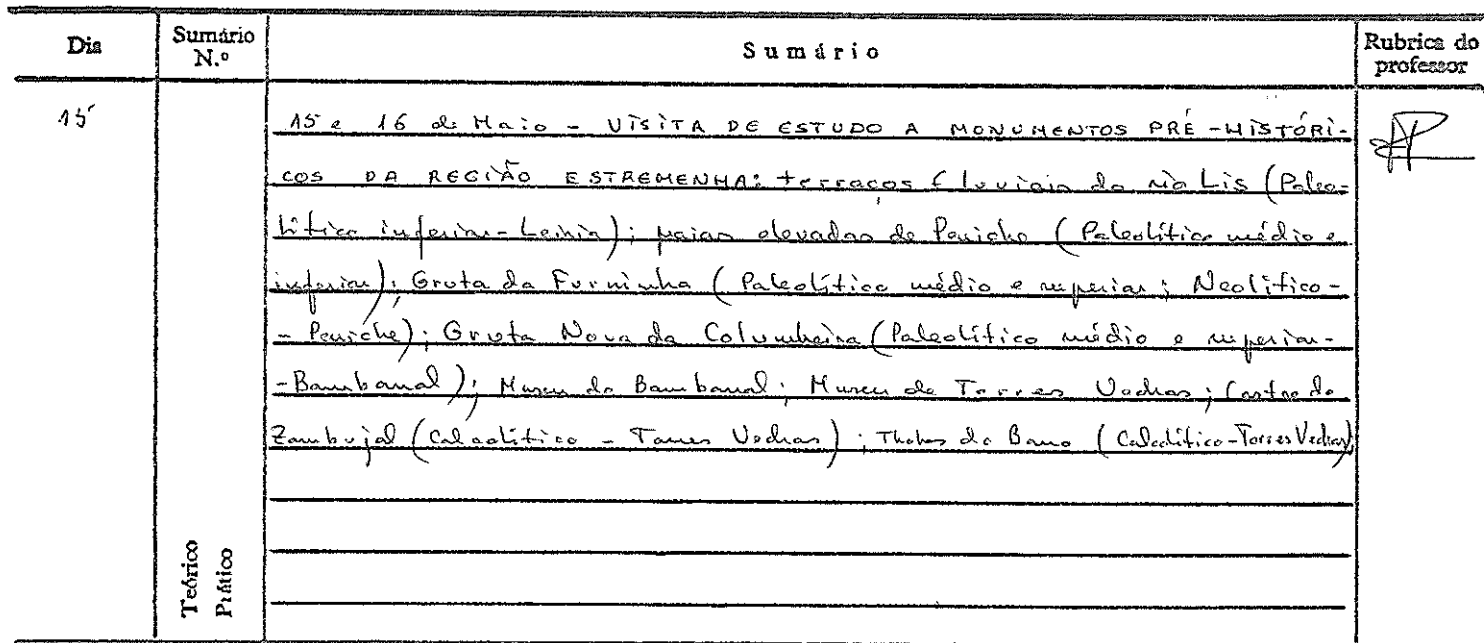 Dia Sumário N.º Sumário Rubrica do professor
15 15 e 16 de Maio - VISITA DE ESTUDO A MONUMENTOS PRÉ-HISTÓRI-
COS DA REGIÃO ESTREMENHA: terraços fluviais do rio Lis (Paleo-
lítico inferior - Leiria); praias elevadas de Peniche (Paleolítico médio e
inferior); Gruta da Furninha (Paleolítico médio e superior; Neolítico -
- Peniche); Gruta Nova da Columbeira (Paleolítico médio e superior -
- Bombarral); Museu do Bombarral; Museu de Torres Vedras; Castro do
Zambujal (Calcolítico - Torres Vedras); Tholos do Barro (Calcolítico - Torres Vedras)
Teórico
Prático